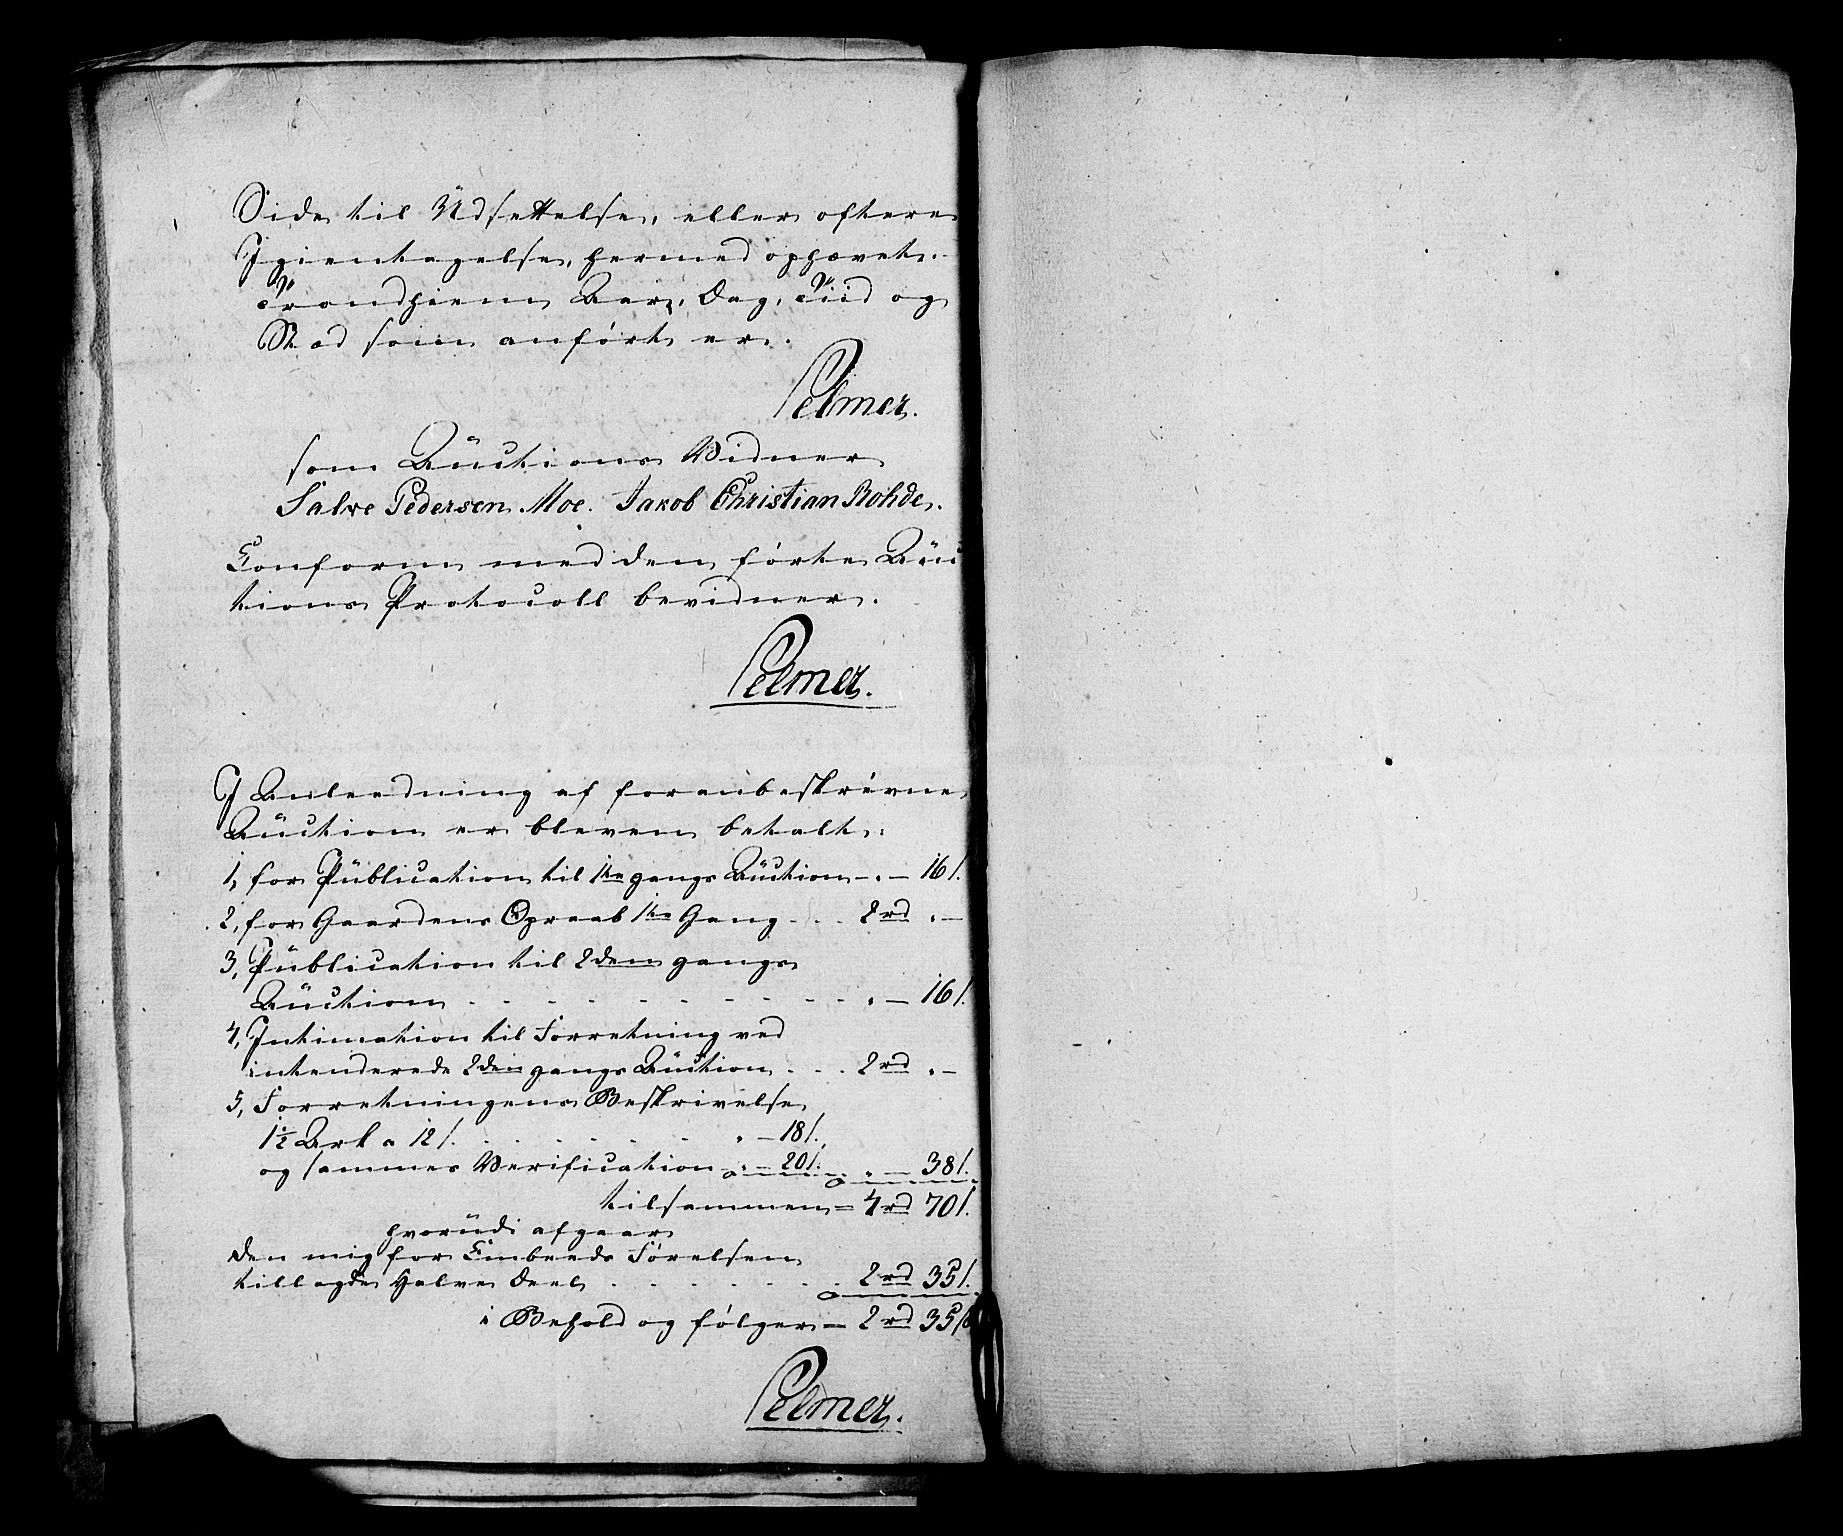 Side til Udsettelse, eller oftere
Igientagelse, hermed ophævet.
Trondhiem Aar, Dag, Tiid og
Stæd som anført er.
Pelmer.
som Auctions Vidner
Salve Pedersen Moe. Jakob Christian Rohde.
Conform med den førte Auc
tions Protocoll bevidner.
Pelmer.
I Anleedning af foranbeskrevne
Auction er bleven betalt:
1, for Publication til 1te gangs Auction - . - 16 s.
2, for Gaardens Opraab 1te Gang . . . 2 rd . -
3, Publication til 2den gangs
Auction . . . . . . . . . . . " - 16 s.
4, Intimation til Forretning ved
intenderede 2den gangs Auction . . . 2 rd . -
5, Forretningens Beskrivelse
1½ Ark a 12 s. . . . . . . " - 18 s.
og sammes Verification . " - 20 s. . " - 38 s.
tilsammen = 4 rd 70 s.
hvorudi afgaar
den mig for Embeeds Førelsen
tillagde Halve Deel . . . . . . . 2 rd 35 s.
i Behold og følger - 2 rd 35 s
Pelmer.